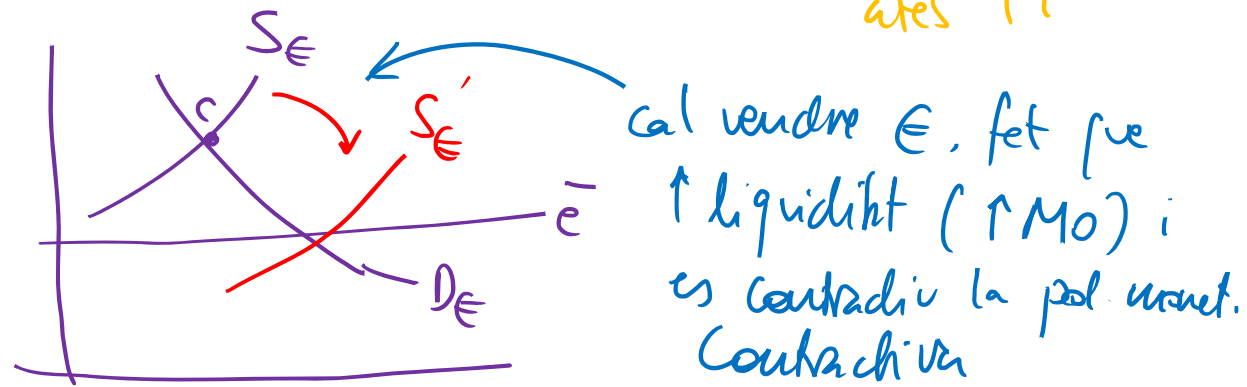 atès
S€
c
S€'
cal vendre €, fet que
↑ liquiditat (↑ M0) i
es contradiu la pol. monet.
Contractiva
ē
D€